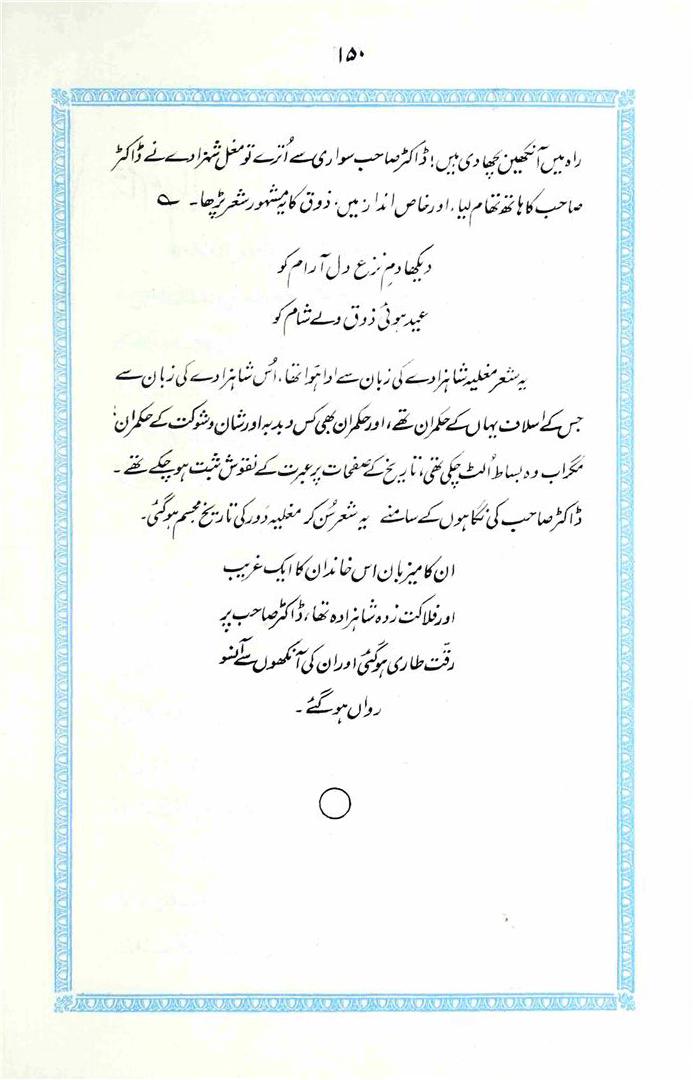 ۱۵۰
راہ میں آنکھیں بچھا دی ہیں؛ ڈاکٹر صاحب سواری سے اُترے تو مغل شہزادے نے ڈاکٹر
صاحب کا ہاتھ تھام لیا، اور خاص انداز میں۔ ذوق کا یہ مشہور شعر پڑھا۔ ؎
دیکھا دمِ نزع دل آرام کو
عید ہوئی ذوق ولے شام کو
یہ شعر مغلیہ شاہزادے کی زبان سے ادا ہوا تھا، اُس شاہزادے کی زبان سے
جس کے اسلاف یہاں کے حکمران تھے، اور حکمران بھی کس دبدبہ اور شان و شوکت کے حکمران!
مگر اب وہ بساط اُلٹ چکی تھی، تاریخ کے صفحات پر عبرت کے نقوش ثبت ہو چکے تھے۔
ڈاکٹر صاحب کی نگاہوں کے سامنے یہ شعر سُن کر مغلیہ دَور کی تاریخ مجسم ہو گئی۔
ان کا میزبان اس خاندان کا ایک غریب
اور فلاکت زدہ شاہزادہ تھا، ڈاکٹر صاحب پر
رقّت طاری ہو گئی اور ان کی آنکھوں سے آنسو
رواں ہو گئے۔